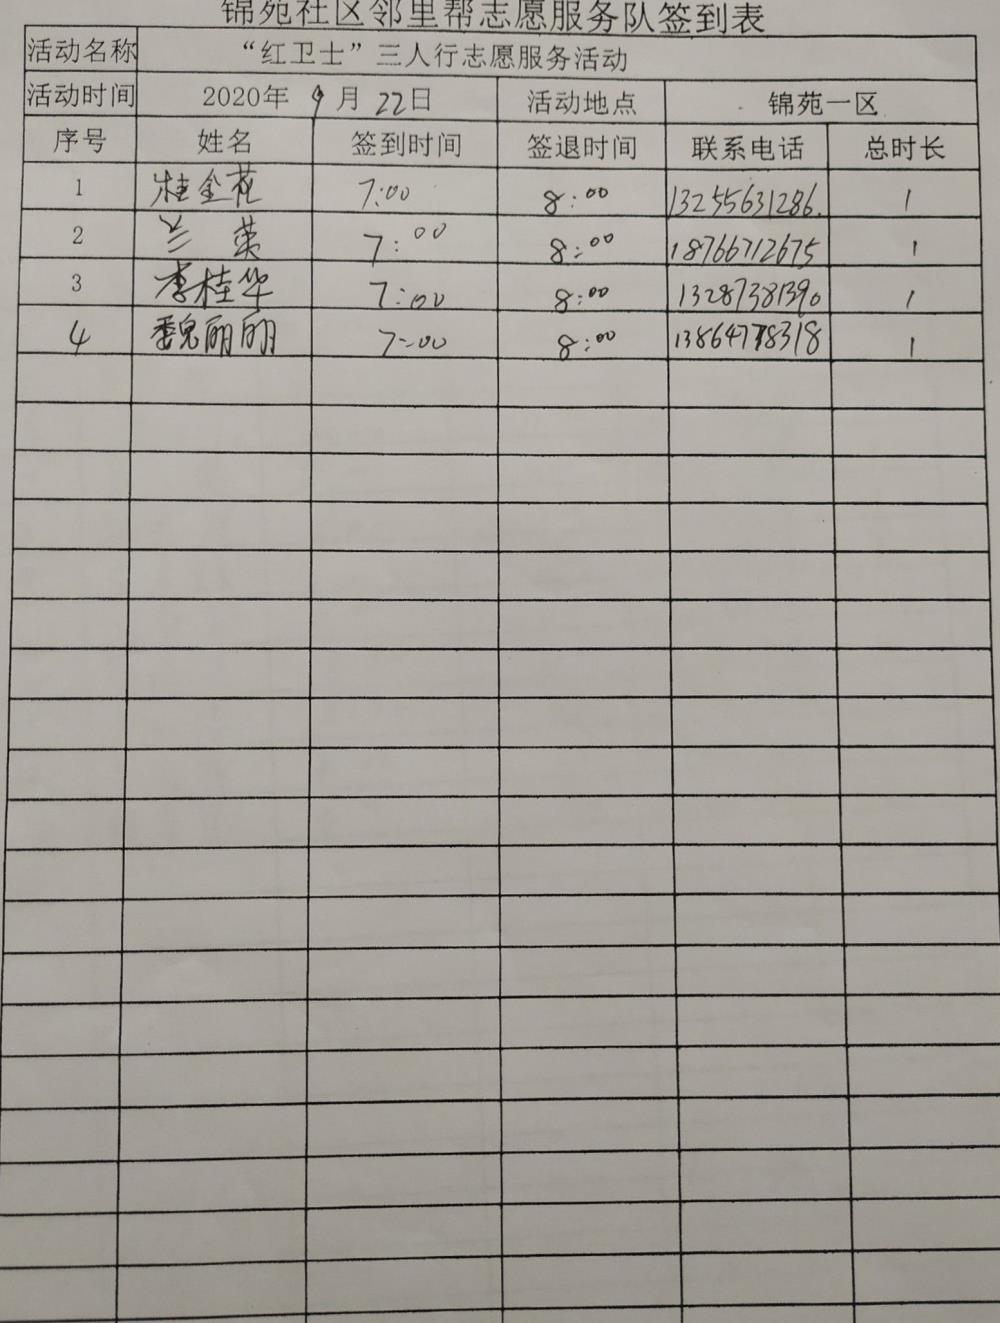 锦苑社区邻里帮志愿服务队签到表
活动名称 “红卫士”三人行志愿服务活动
活动时间 2020年 9月 22日 活动地点 锦苑一区
序号 姓名 签到时间 签退时间 联系电话 总时长
1 桂金花 7:00 8:00 13255631286. 1
2 兰英 7:00 8:00 18766712675 1
3 李桂华 7:00 8:00 13287381390 1
4 魏丽丽 7:00 8:00 1